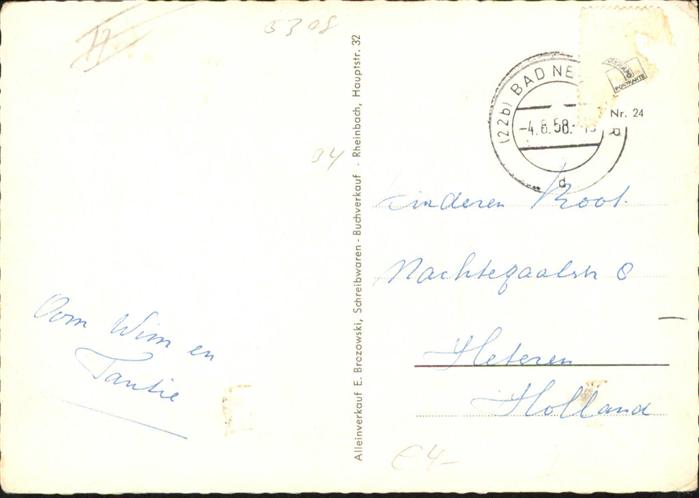 5308
94
Oom Wim en
Tantie
Alleinverkauf E. Brozowski, Schreibwaren - Buchverkauf - Rheinbach, Hauptstr. 32
(22b) BAD NE
-4.8.58.-
d
a
POSTKARTE
Nr. 24
Kinderen Root.
Nachtegaalstr 8
Heteren
Holland
€4-